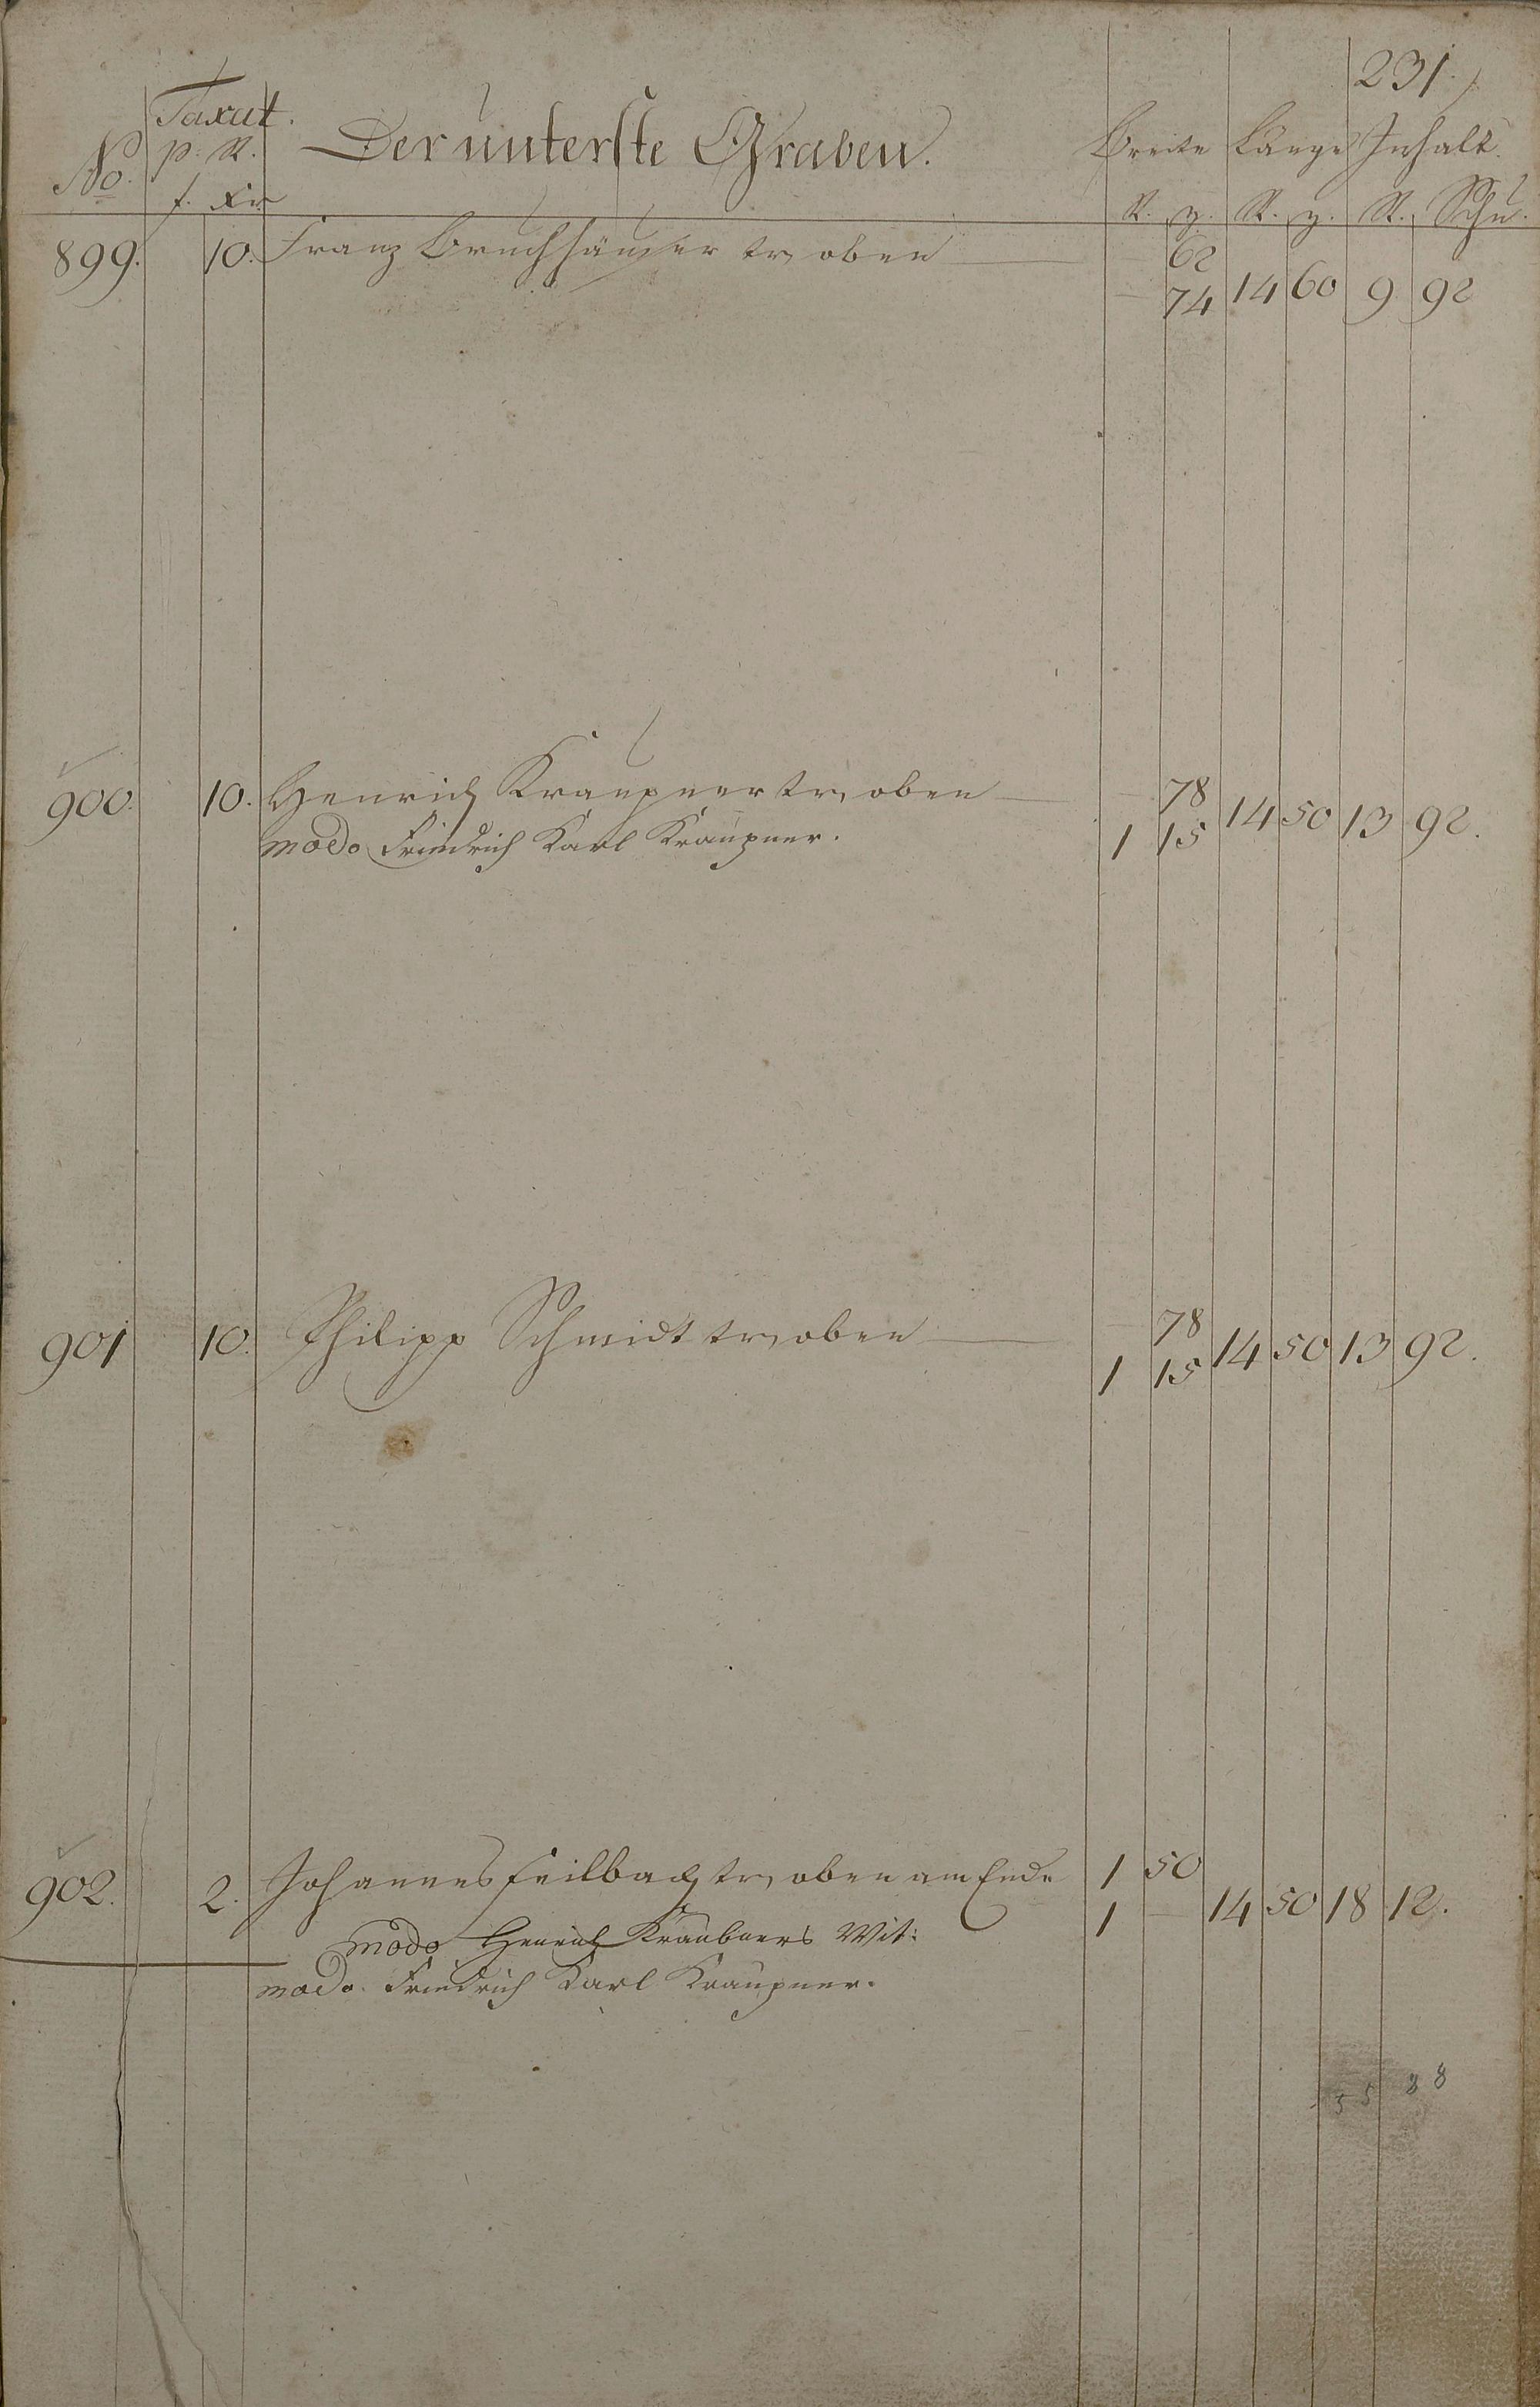 231.
Taxat.
No. p. R. Der unterste Graben. Breite Länge Inhalt.
f. Xr. R. z. R. z. R. Schu.
899. 10. Franz Bruchhäuser tr, oben — 62
— 74 14 60 9 92
900. 10. Henrich Kraupner tr, oben — 78 14 50 13 92.
modo Friedrich Karl Kraupner. 1 15
901 10. Philipp Schmidt tr, oben — 78 14 50 13 92.
1 15
902. 2. Johannes Feilbach tr, oben am Ende 1 50
1 — 14 50 18 12.
modo Henrich Kraubners Wit:
modo Friedrich Karl Kraupner.
55 88